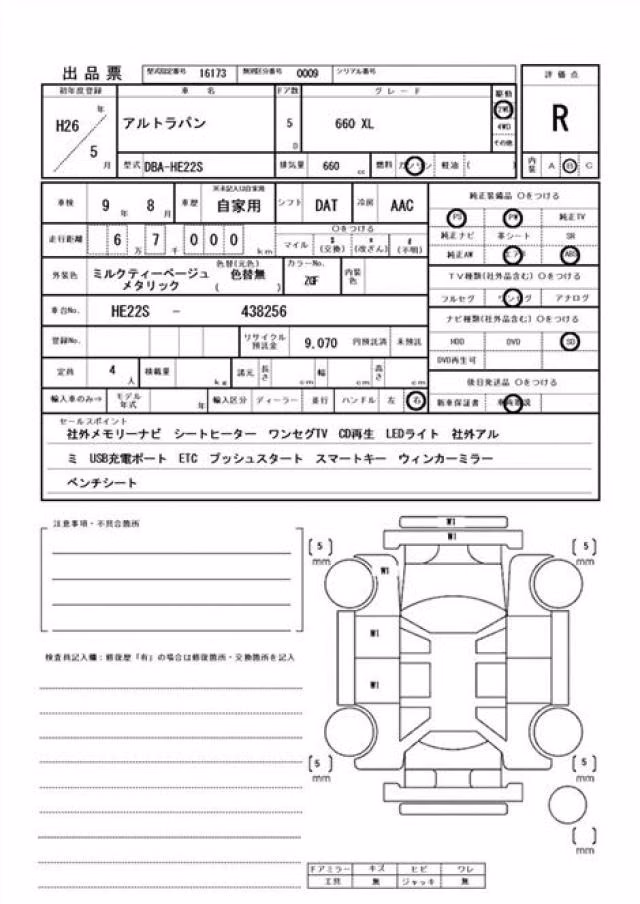 出品票 型式指定番号 16173 類別区分番号 0009 シリアル番号
初年度登録 車 名 ドア数 グレード 駆動 評価点
H26 年 5 月 アルトラパン 5 D 660 XL 2WD 4WD その他 R
型式 DBA-HE22S 排気量 660 cc 燃料 ガソリン 軽油 ( ) 内装 A B C
車検 9 年 8 月 車歴 ※未記入は自家用 自家用 シフト DAT 冷房 AAC
純正装備品 〇をつける
PS PW 純正TV
走行距離 6 万 7 千 0 0 0 km 〇をつける マイル $ (交換) * (改ざん) # (不明)
純正ナビ 革シート SR
純正AW エアB ABS
外装色 ミルクティーベージュ メタリック 色替(元色) 色替無 ( ) カラーNo. ZQF 内装色
TV種類(社外品含む) 〇をつける
フルセグ ワンセグ アナログ
車台No. HE22S - 438256
ナビ種類(社外品含む) 〇をつける
登録No. リサイクル預託金 9,070 円預託済 未預託
HDD DVD SD
DVD再生可
定員 4 人 積載量 kg 諸元 長さ cm 幅 cm 高さ cm
後日発送品 〇をつける
輸入車のみ⇒ モデル年式 年 輸入区分 ディーラー 並行 ハンドル 左 右
新車保証書
セールスポイント
社外メモリーナビ シートヒーター ワンセグTV CD再生 LEDライト 社外アル
ミ USB充電ポート ETC プッシュスタート スマートキー ウィンカーミラー
ベンチシート
注意事項・不具合箇所
検査員記入欄:修復歴「有」の場合は修復箇所・交換箇所を記入
W1
W1
[5] mm W1 [5] mm
W1
W1
[5] mm [5] mm
[ ] mm
ドアミラー キズ ヒビ ワレ
工具 無 ジャッキ 無